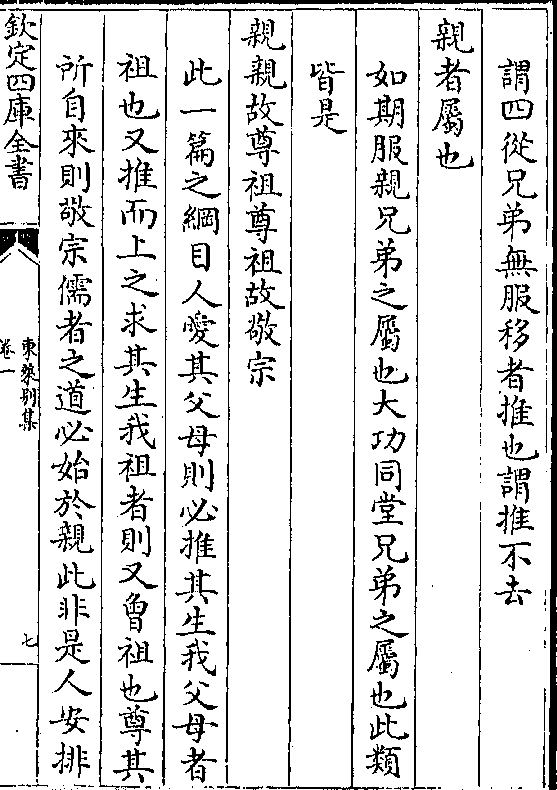 謂四從兄弟無服移者推也謂推不去
親者屬也
如期服親兄弟之屬也大功同堂兄弟之屬也此類
皆是
親親故尊祖尊祖故敬宗
此一篇之綱目人愛其父母則必推其生我父母者
祖也又推而上之求其生我祖者則又曾祖也尊其
所自來則敬宗儒者之道必始於親此非是人安排
欽定四庫全書
東萊別集
卷一
七